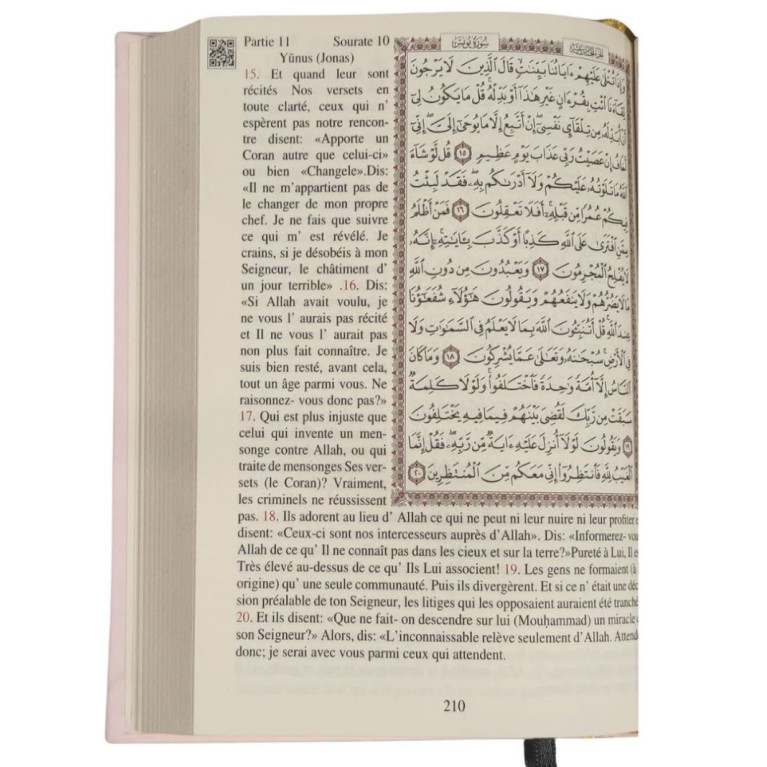 Partie 11 Sourate 10
Yūnus (Jonas)
15. Et quand leur sont
récités Nos versets en
toute clarté, ceux qui n’
espèrent pas notre rencon-
tre disent: «Apporte un
Coran autre que celui-ci»
ou bien «Changele».Dis:
«Il ne m’appartient pas de
le changer de mon propre
chef. Je ne fais que suivre
ce qui m’ est révélé. Je
crains, si je désobéis à mon
Seigneur, le châtiment d’
un jour terrible» .16. Dis:
«Si Allah avait voulu, je
ne vous l’ aurais pas récité
et Il ne vous l’ aurait pas
non plus fait connaître. Je
suis bien resté, avant cela,
tout un âge parmi vous. Ne
raisonnez- vous donc pas?»
17. Qui est plus injuste que
celui qui invente un men-
songe contre Allah, ou qui
traite de mensonges Ses ver-
sets (le Coran)? Vraiment,
les criminels ne réussissent
pas. 18. Ils adorent au lieu d’ Allah ce qui ne peut ni leur nuire ni leur profiter e
disent: «Ceux-ci sont nos intercesseurs auprès d’Allah». Dis: «Informerez- vou
Allah de ce qu’ Il ne connaît pas dans les cieux et sur la terre?»Pureté à Lui, Il e
Très élevé au-dessus de ce qu’ Ils Lui associent! 19. Les gens ne formaient (à
origine) qu’ une seule communauté. Puis ils divergèrent. Et si ce n’ était une déc
sion préalable de ton Seigneur, les litiges qui les opposaient auraient été tranché
20. Et ils disent: «Que ne fait- on descendre sur lui (Mouḥammad) un miracle
son Seigneur?» Alors, dis: «L’inconnaissable relève seulement d’Allah. Attend
donc; je serai avec vous parmi ceux qui attendent.
سُورَةُ يُونُسَ
وَإِذَا تُتْلَىٰ عَلَيْهِمْ ءَايَاتُنَا بَيِّنَٰتٍ قَالَ ٱلَّذِينَ لَا يَرْجُونَ
لِقَآءَنَا ٱئْتِ بِقُرْءَانٍ غَيْرِ هَٰذَآ أَوْ بَدِّلْهُ قُلْ مَا يَكُونُ لِىٓ
أَنْ أُبَدِّلَهُۥ مِن تِلْقَآئِ نَفْسِىٓ إِنْ أَتَّبِعُ إِلَّا مَا يُوحَىٰٓ إِلَىَّ إِنِّىٓ
أَخَافُ إِنْ عَصَيْتُ رَبِّى عَذَابَ يَوْمٍ عَظِيمٍ ١٥ قُل لَّوْ شَآءَ
ٱللَّهُ مَا تَلَوْتُهُۥ عَلَيْكُمْ وَلَآ أَدْرَىٰكُم بِهِۦ فَقَدْ لَبِثْتُ
فِيكُمْ عُمُرًا مِّن قَبْلِهِۦٓ أَفَلَا تَعْقِلُونَ ١٦ فَمَنْ أَظْلَمُ
مِمَّنِ ٱفْتَرَىٰ عَلَى ٱللَّهِ كَذِبًا أَوْ كَذَّبَ بِـَٔايَٰتِهِۦٓ إِنَّهُۥ
لَا يُفْلِحُ ٱلْمُجْرِمُونَ ١٧ وَيَعْبُدُونَ مِن دُونِ ٱللَّهِ
مَا لَا يَضُرُّهُمْ وَلَا يَنفَعُهُمْ وَيَقُولُونَ هَٰٓؤُلَآءِ شُفَعَٰٓؤُنَا
عِندَ ٱللَّهِ قُلْ أَتُنَبِّـُٔونَ ٱللَّهَ بِمَا لَا يَعْلَمُ فِى ٱلسَّمَٰوَٰتِ وَلَا
فِى ٱلْأَرْضِ سُبْحَٰنَهُۥ وَتَعَٰلَىٰ عَمَّا يُشْرِكُونَ ١٨ وَمَا كَانَ
ٱلنَّاسُ إِلَّآ أُمَّةً وَٰحِدَةً فَٱخْتَلَفُوا۟ وَلَوْلَا كَلِمَةٌ
سَبَقَتْ مِن رَّبِّكَ لَقُضِىَ بَيْنَهُمْ فِيمَا فِيهِ يَخْتَلِفُونَ
١٩ وَيَقُولُونَ لَوْلَآ أُنزِلَ عَلَيْهِ ءَايَةٌ مِّن رَّبِّهِۦ فَقُلْ إِنَّمَا
ٱلْغَيْبُ لِلَّهِ فَٱنتَظِرُوٓا۟ إِنِّى مَعَكُم مِّنَ ٱلْمُنتَظِرِينَ ٢٠
210